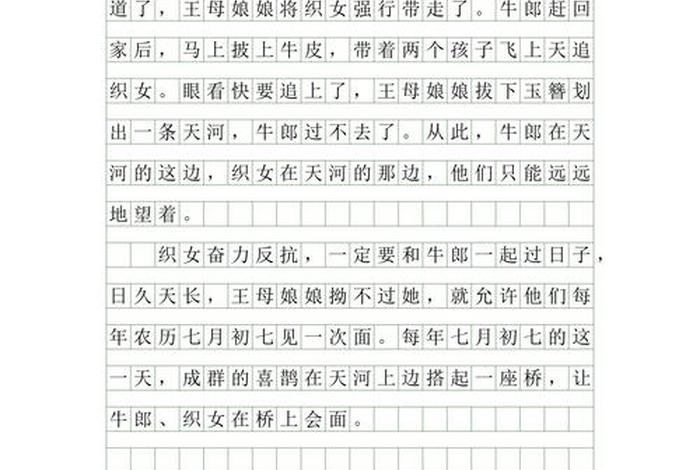 道了，王母娘娘将织女强行带走了。牛郎赶回
家后，马上披上牛皮，带着两个孩子飞上天追
织女。眼看快要追上了，王母娘娘拔下玉簪划
出一条天河，牛郎过不去了。从此，牛郎在天
河的这边，织女在天河的那边，他们只能远远
地望着。
织女奋力反抗，一定要和牛郎一起过日子，
日久天长，王母娘娘拗不过她，就允许他们每
年农历七月初七见一次面。每年七月初七的这
一天，成群的喜鹊在天河上边搭起一座桥，让
牛郎、织女在桥上会面。